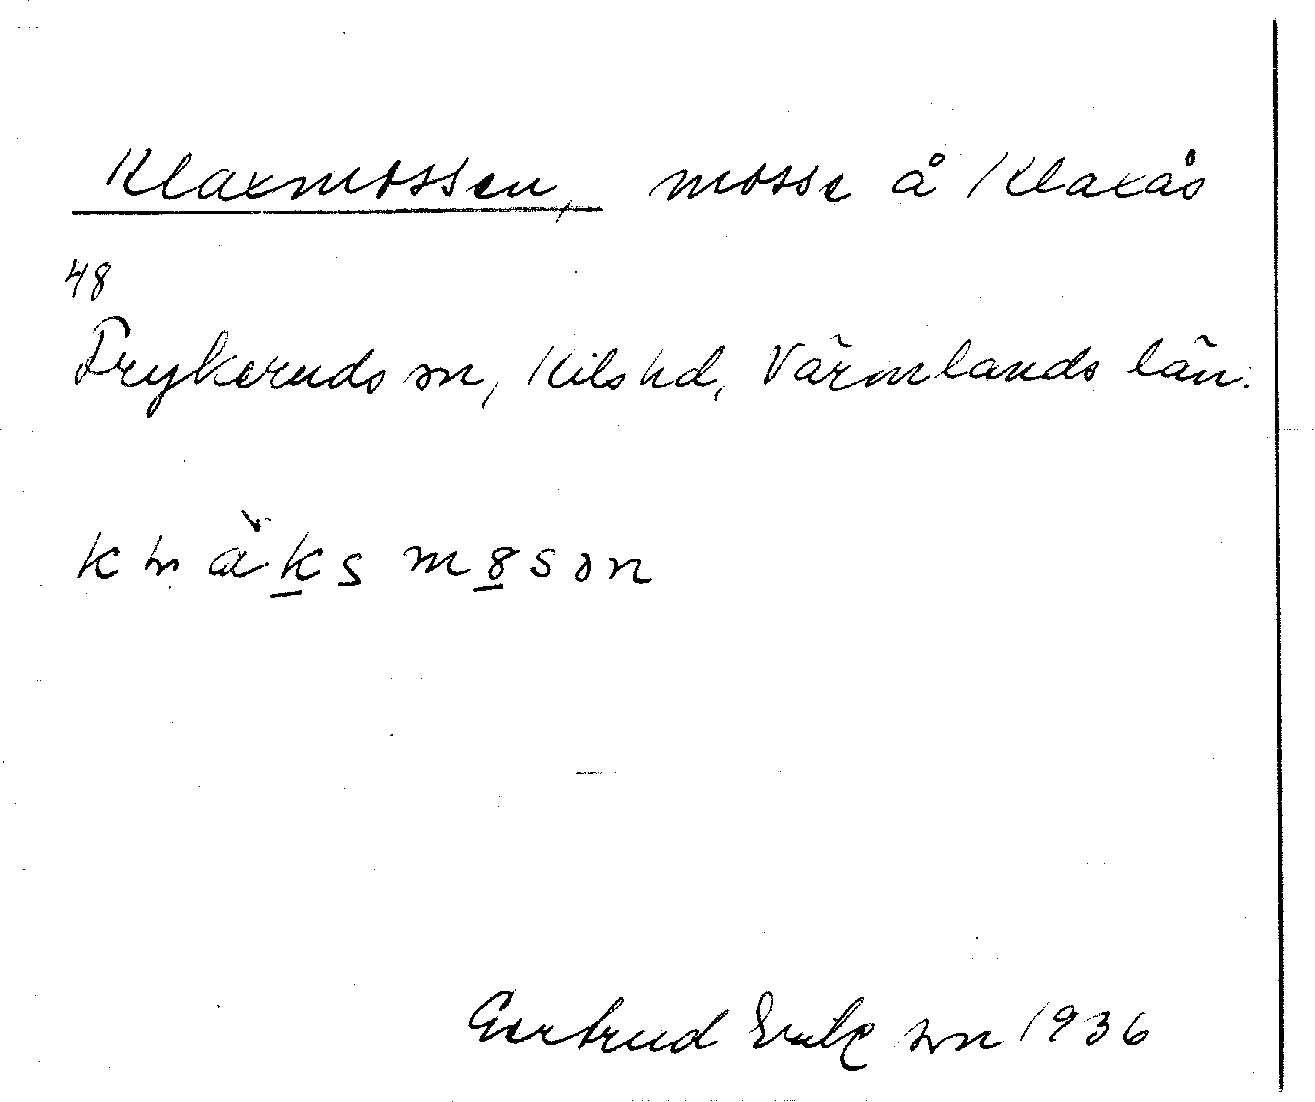 Klaxmossen, mosse å Klaxås
48
Frykeruds sn, Kils hd, Värmlands län.
Gertrud 1936